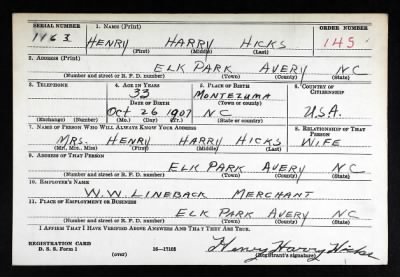 SERIAL NUMBER 1. NAME (Print) ORDER NUMBER
1163 HENRY HARRY HICKS 145
(First) (Middle) (Last)
2. ADDRESS (Print)
ELK PARK AVERY NC
(Number and street or R. F. D. number) (Town) (County) (State)
3. TELEPHONE 4. AGE IN YEARS 5. PLACE OF BIRTH 6. COUNTRY OF CITIZENSHIP
33 MONTEZUMA
DATE OF BIRTH (Town or county)
Oct 26 1907 NC U.S.A.
(Exchange) (Number) (Mo.) (Day) (Yr.) (State or country)
7. NAME OF PERSON WHO WILL ALWAYS KNOW YOUR ADDRESS 8. RELATIONSHIP OF THAT PERSON
MRS. HENRY HARRY HICKS WIFE
(Mr., Mrs., Miss) (First) (Middle) (Last)
9. ADDRESS OF THAT PERSON
ELK PARK AVERY NC
(Number and street or R. F. D. number) (Town) (County) (State)
10. EMPLOYER'S NAME
W.W. LINEBACK MERCHANT
11. PLACE OF EMPLOYMENT OR BUSINESS
ELK PARK AVERY NC
(Number and street or R. F. D. number) (Town) (County) (State)
I AFFIRM THAT I HAVE VERIFIED ABOVE ANSWERS AND THAT THEY ARE TRUE.
REGISTRATION CARD
D. S. S. Form 1 16-17105 Henry Harry Hicks
(over) (Registrant's signature)